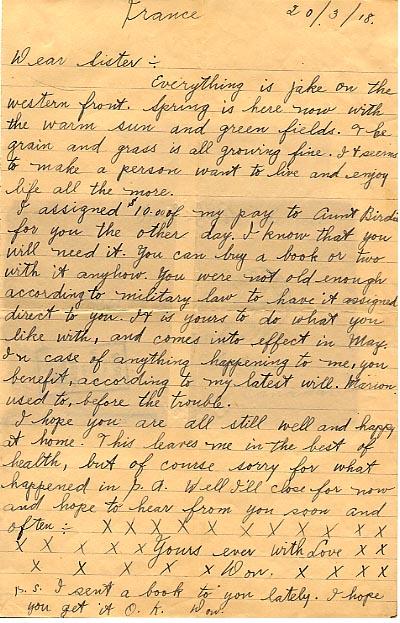 France 20/3/18.
Dear Sister :-
Everything is jake on the
western front. Spring is here now with
the warm sun and green fields. The
grain and grass is all growing fine. It seems
to make a person want to live and enjoy
life all the more.
I assigned $10.00 of my pay to Aunt Birdie
for you the other day. I know that you
will need it. You can buy a book or two
with it anyhow. You were not old enough
according to military law to have it assigned
direct to you. It is yours to do what you
like with, and comes into effect in May.
In case of anything happening to me, you
benefit, according to my latest will. Marion
used to, before the trouble.
I hope you are all still well and happy
at home. This leaves me in the best of
health, but of course sorry for what
happened in P.A. Well I'll close for now
and hope to hear from you soon and
often :- X X X X X X X X X X X X
X X X X X Yours ever with Love X X
X X X X X Won. X X X X
P.S. I sent a book to you lately. I hope
you get it O.K. Won.